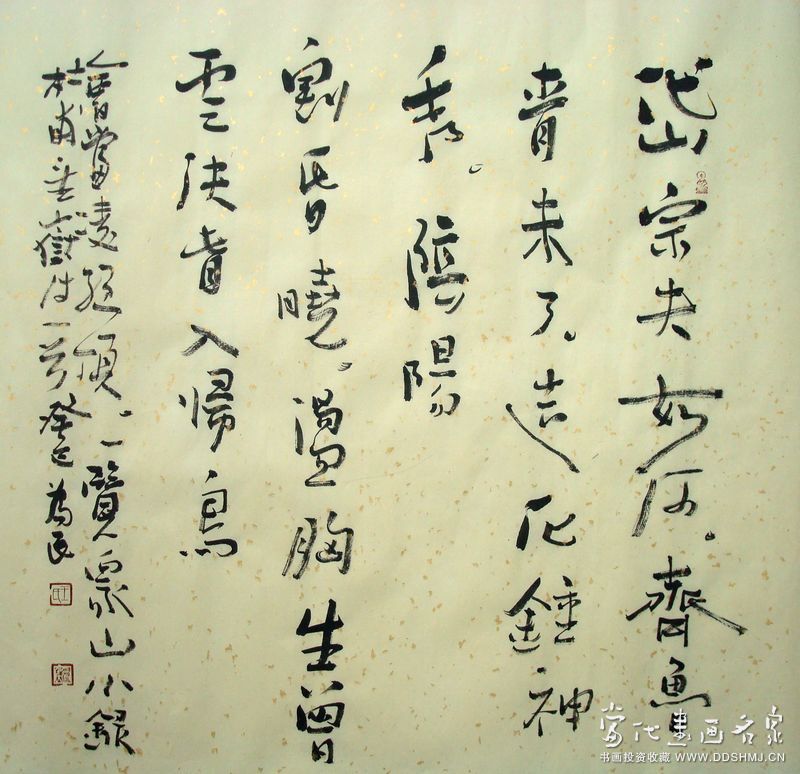 岱宗夫如何。齊魯
青未了。造化鍾神
秀。陰陽
割昏曉。盪胸生曾
雲決眥入歸鳥
會當凌絕頂。一覽衆山小錄
杜甫望嶽诗一首 癸巳 為民
當代書画名家
书画投资收藏 WWW.DDSHMJ.CN